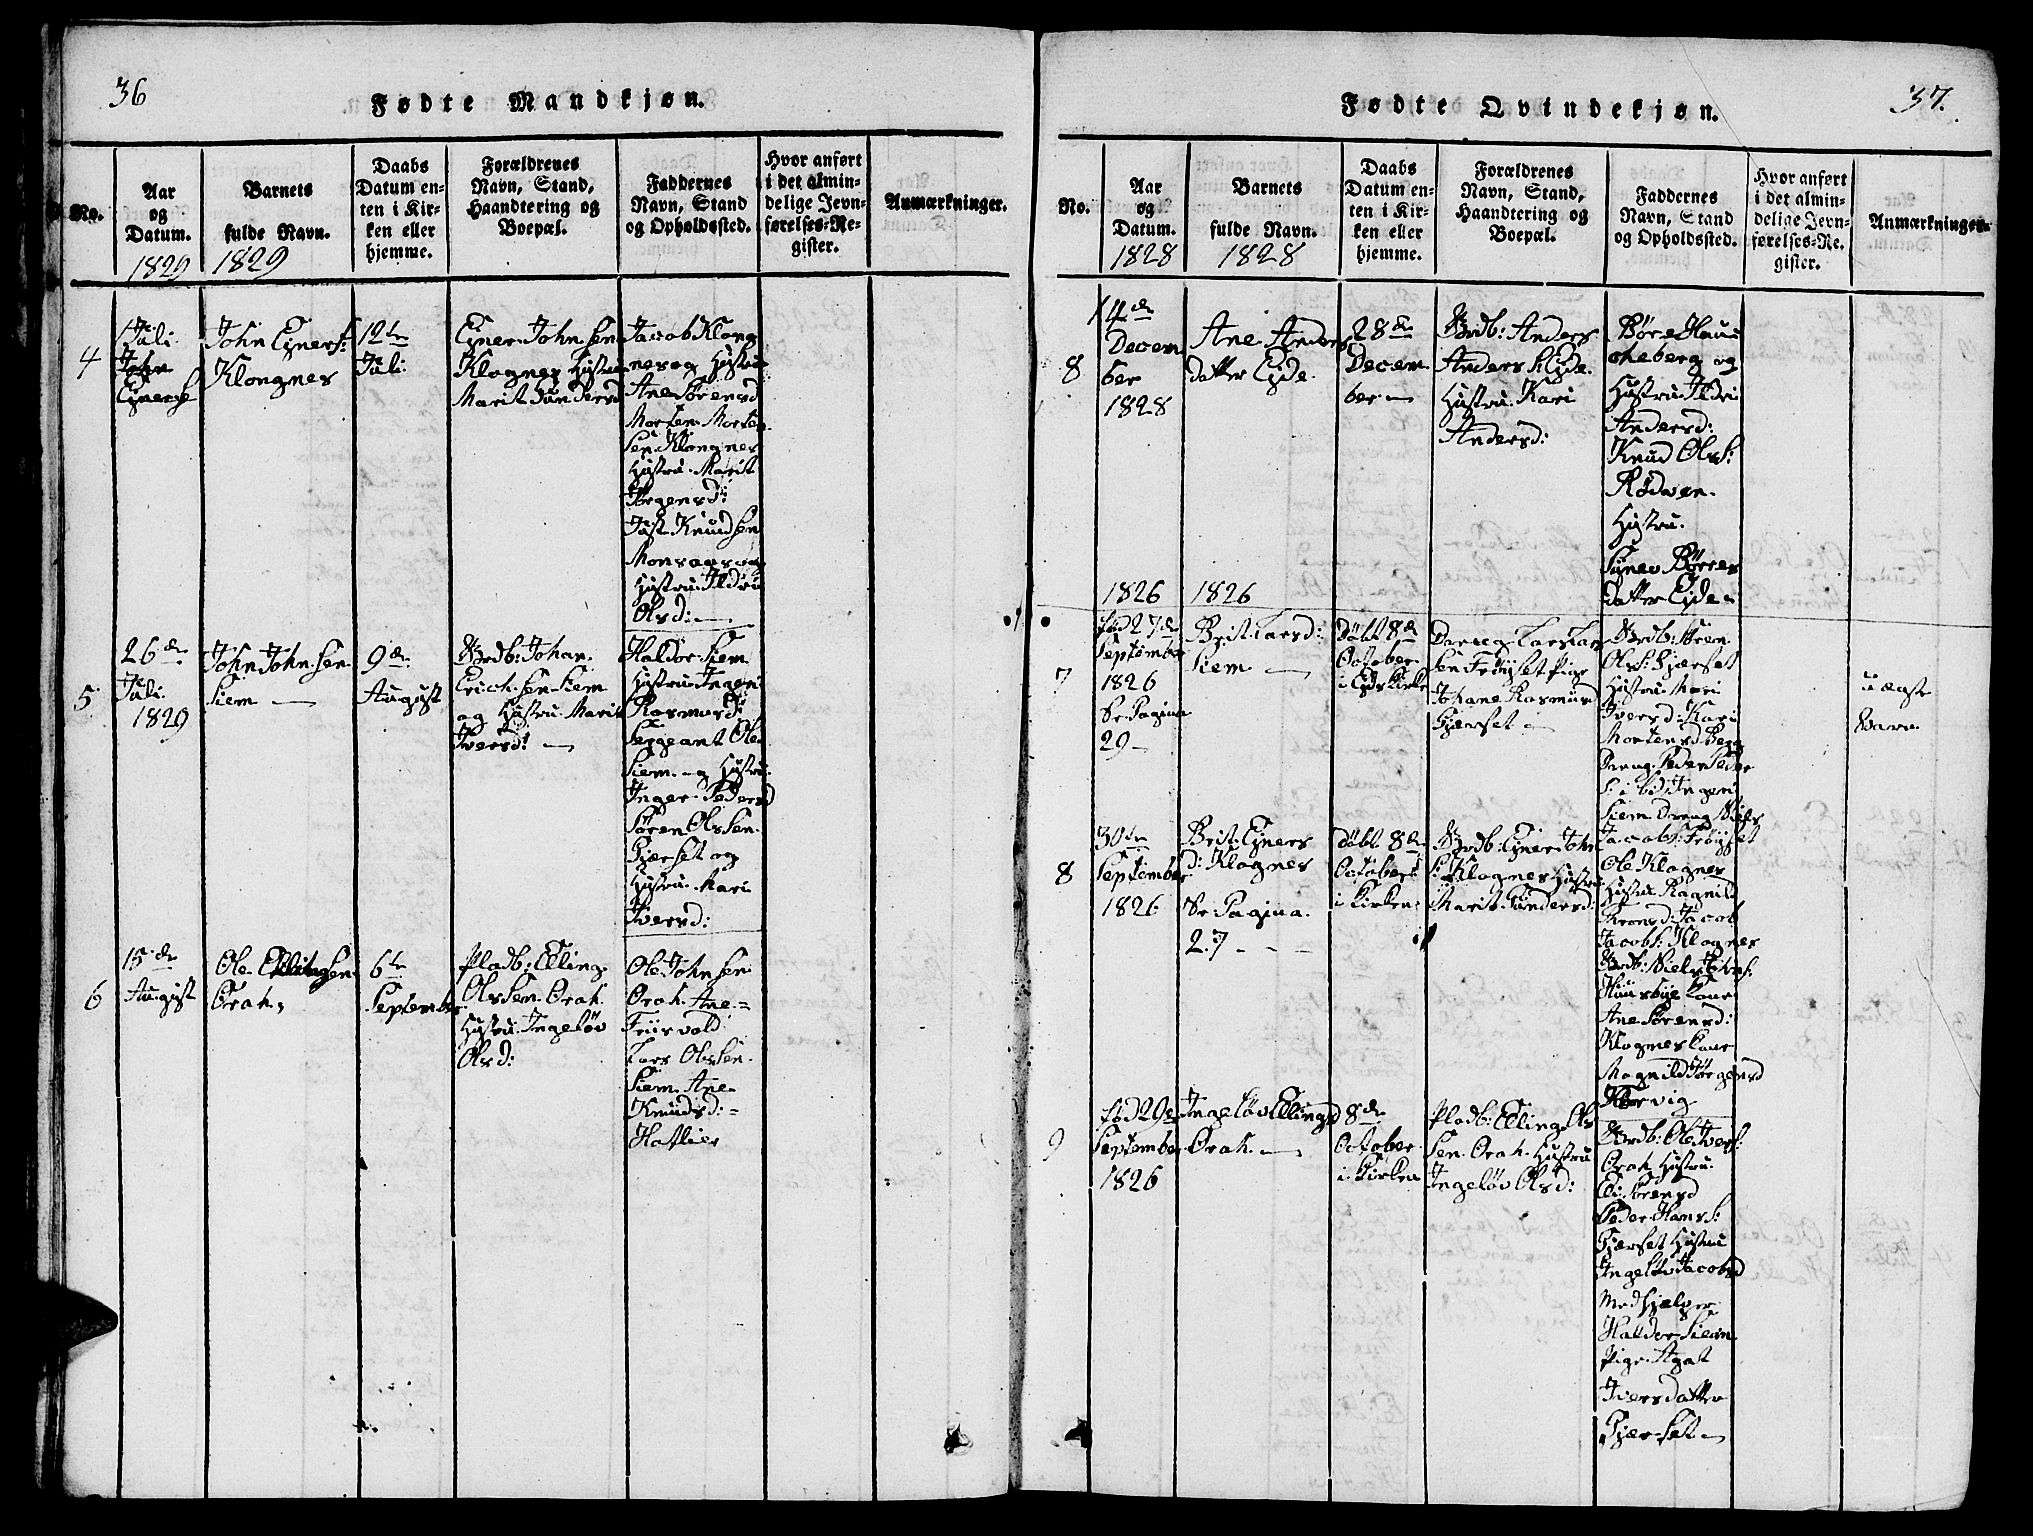 36
Fødte Mandkjøn.
No.
Aar
og
Datum.
1829
Barnets
fulde Navn.
1829
Daabs
Datum en-
ten i Kir-
ken eller
hjemme.
Forældrenes
Navn, Stand,
Haandtering og
Boepæl.
Faddernes
Navn, Stand
og Opholdssted.
Hvor anført
i det almin-
delige Jevn-
førelses-Re-
gister.
Anmærkninger.
4
1
Juli
John
Ejnerse
John Ejners:
Klongnes
12te
Juli
Ejner Johnsen
Klognes Hustru
Marit Gundersd
Jacob Klong
nes og Hustru
Ane Sørensd
Morten Morten
sen Klongnes
Hustru Marit
Jørgensd:
Knudsen
Hustru Ildri
Olsd: —
5
26de
Juli
1829
John Johnsen
Siem —
9de
August
Grdb: Johan
Erichsen Siem
og Hustru Marit
Iversd: —
Haldor Siem
Hustru Ingeri
Rasmusd:
Sergeant Ole
Siem og Hustru
Inger Pedersd
Søren Olssen
Gjerset og
Hustru Mari
Iversd:
6
15de
August
Ole Ellingsen
Orah,
6te
September
Pladb: Elling
Olssen Orah
Hustru Ingeløv
Olsd:
Ole Johnsen
Orah Ane
Friisvold
Lars Olssen
Siem Ane
Knudsd:
Hatlies
37.
Fødte Qvindekjøn.
No.
Aar
og
Datum.
1828
Barnets
fulde Navn.
1828
Daabs
Datum en-
ten i Kir-
ken eller
hjemme.
Forældrenes
Navn, Stand,
Haandtering og
Boepæl.
Faddernes
Navn, Stand
og Opholdssted.
Hvor anført
i det almin-
delige Jevn-
førelses-Re-
gister.
Anmærkninger.
8
14de
Decem
ber
1828
Ane Anders
datter Ejde
28de
Decem
ber —
Grdb: Anders
Anders: Ejde
Hustru Kari
Andersd:
Børe Hau
cheberg og
Hustru Ildri
Andersd:
Knud Ols:
Rødven
Hustru
Synev Børres
datter Ejde
1826
1826
7
fød 27de
September
1826
Se Pagina
29 —
Brit Larsd:
Siem —
Døbt 8de
October
i Eids Kirke
Dreng Lars Lar
sen Frøyset Pige
Johane Rasmusd
Gjerset —
Grdb:
Ols: Gjerset
Hustru Mari
Iversd: Kari
Mortensd
Dreng Peder Peder
s: ibid, Ingeri
Siem Dreng Niels
Jacobs: Frøyset
uægte
Barn
8
30te
September
1826
Brit Ejners
d: Klognes
Se Pagina
27 — —
Døbt 8de
October
i Kirken
Grdb: Ejner John
s: Klognes Hustru
Marit Gundersd:
Ole Klognes
Hustru Ragnild
Jacob
Jacobs: Klognes
Grdb: Niels Johns:
Huusbye Kone
Ane Sørensd:
Klognes Kone
Magnild Jørgensd
Torvig
9
fød 29de
September
1826
Ingeløv Ellingsd
Orah —
8de
October
i Kirken
Pladb: Elling Ols
sen Orah Hustru
Ingeløv Olsd:
Grdb: Ole Ivers:
Orah Hustru
Eli Sørensd
Peder Hans:
Gjerset Hustru
Ingeløv Jacobsd
Medhjelper
Haldor Siem
Pige Agat
Iversdatter
Gjerset —